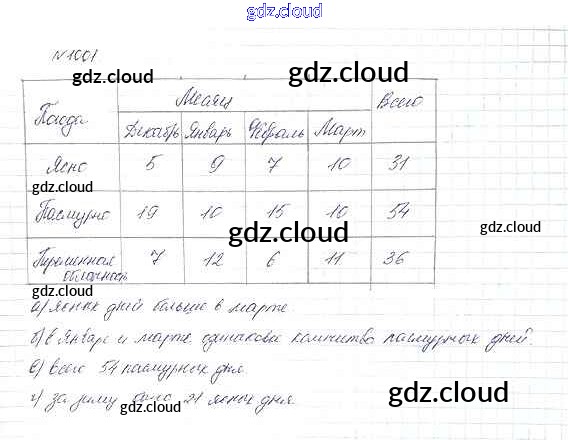 gdz.cloud
№1001
gdz.cloud
gdz.cloud
Погода Месяц Всего
Декабрь Январь Февраль Март
gdz.cloud
Ясно 5 9 7 10 31
gdz.cloud
Пасмурно 19 10 15 10 54
gdz.cloud
gdz.cloud
Переменная облачность 7 12 6 11 36
gdz.cloud
а) ясных дней больше в марте.
б) в Январе и марте одинаково количество пасмурных дней.
в) всего 54 пасмурных дня
gdz.cloud
г) за зиму было 21 ясных дня.
gdz.cloud
gdz.cloud